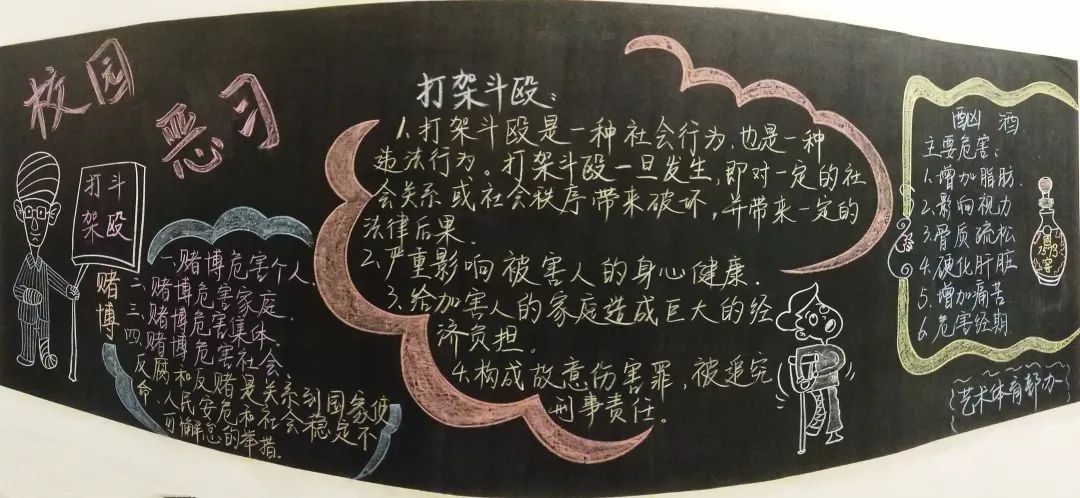 校园
恶习
打架
斗殴
赌博
一、赌博危害个人.
二、赌博危害家庭.
三、赌博危害集体.
四、赌博危害社会.
反腐和反赌是关系到国家使
命,人民安危和社会稳定不
可懈怠的举措.
打架斗殴:
1.打架斗殴是一种社会行为,也是一种
违法行为。打架斗殴一旦发生,即对一定的社
会关系或社会秩序带来破坏,并带来一定的
法律后果.
2.严重影响被害人的身心健康.
3.给加害人的家庭造成巨大的经
济负担。
4.构成故意伤害罪,被追究
刑事责任。
酗酒
主要危害:
1.增加脂肪.
2.影响视力
3.骨质疏松
4.硬化肝脏
5.增加痛苦
6.危害经期.
國窖
1573
艺术体育部办